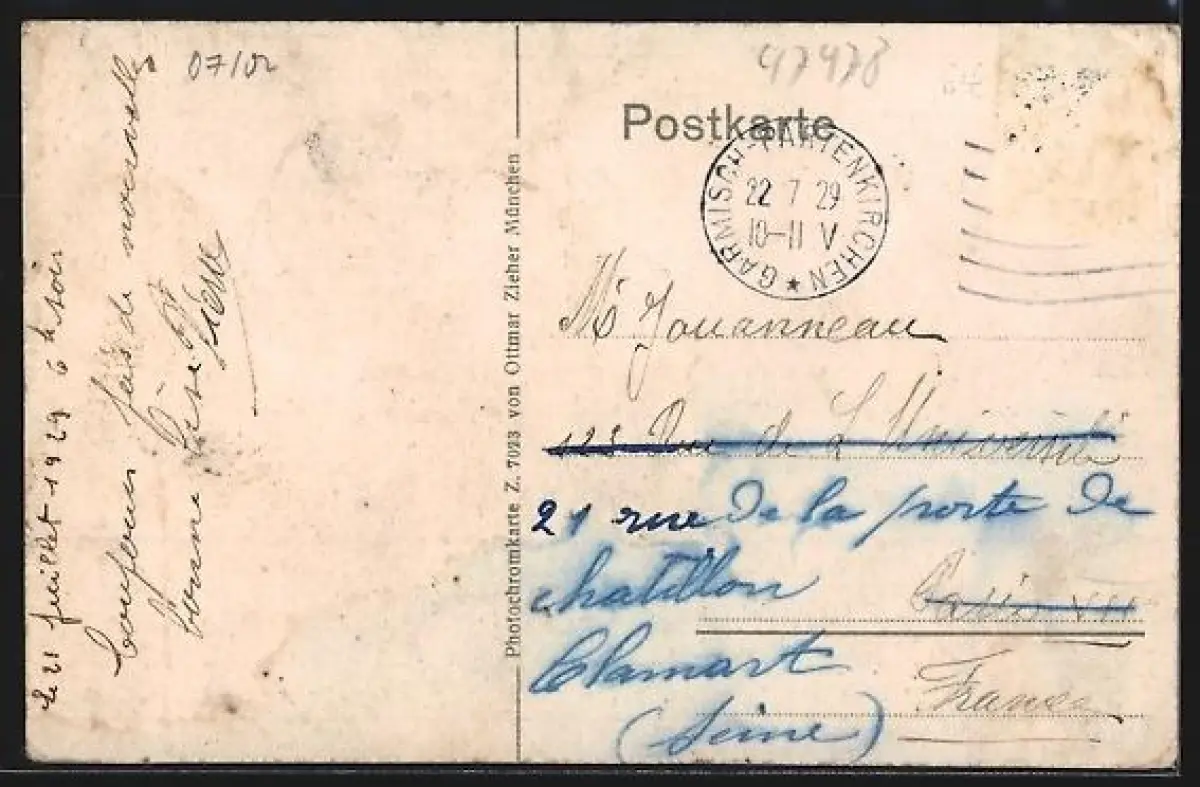 07/02
Le 21 Juillet 1929 6h soir
toujours pas de nouvelles
bonne
Pierre
Photochromkarte Z. 7023 von Ottmar Zieher München
47478
Postkarte
GARMISCH-PARTENKIRCHEN
22 7 29
10-11 V
Mr Jouanneau
123 Rue de L'Université
21 rue de la porte de
chatillon
Paris VII
Clamart
France
(Seine)